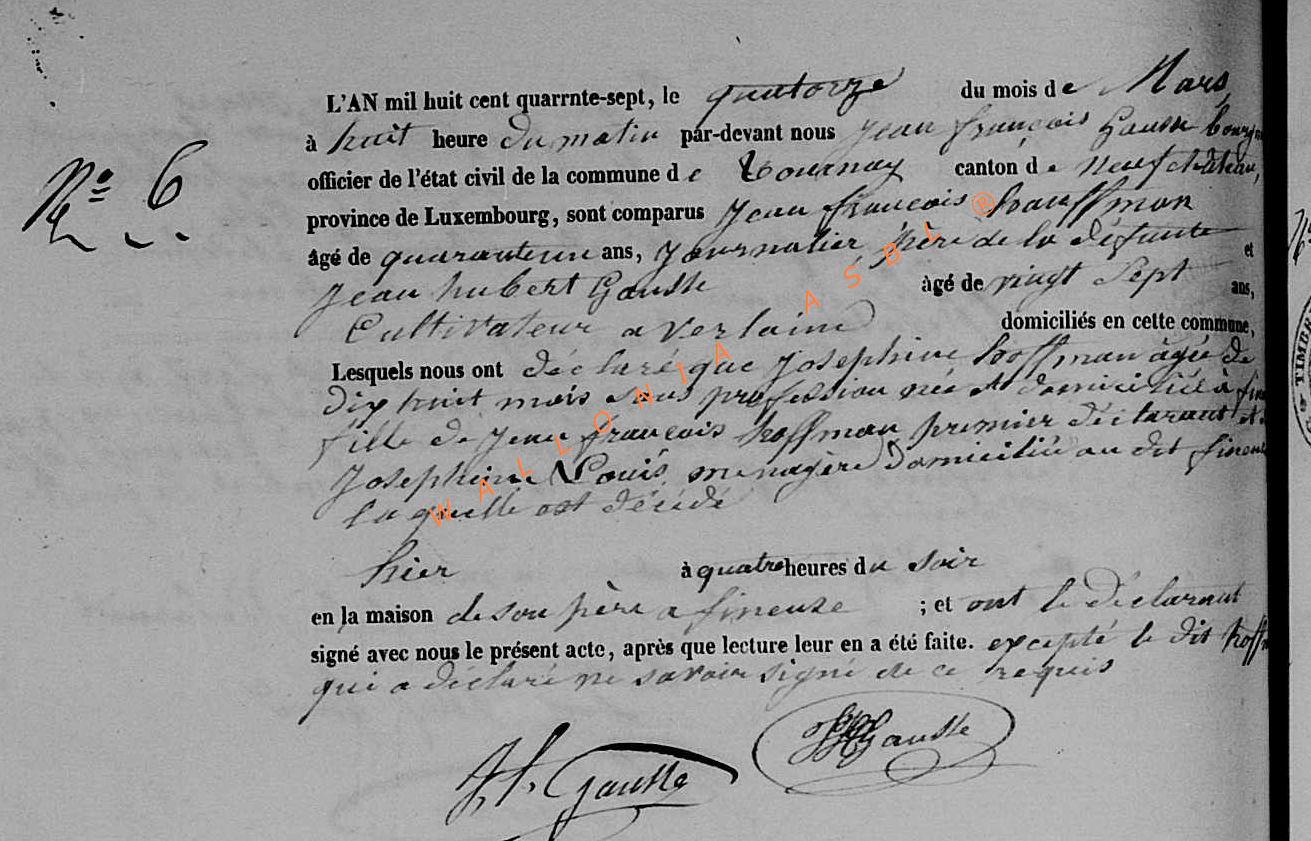 L'AN mil huit cent quarrnte-sept, le quatorze du mois de Mars
à huit heure du matin par-devant nous Jean françois Gausse
Nº 6
officier de l'état civil de la commune de Tournay canton de neufchâteau,
province de Luxembourg, sont comparus Jean françois hauffman
âgé de quarante ans, Journalier père de la défunte et
Jean hubert Gausse âgé de vingt Sept ans,
Cultivateur a verlaine domiciliés en cette commune,
Lesquels nous ont déclaré que Josephine hoffman âgée de
dix huit mois sans profession née et domiciliée à
fille de Jean françois hoffman premier déclarant et
Josephine Louis, menagère domiciliée au dit fineuse
laquelle est décédé
hier à quatre heures du soir
en la maison de son père a fineuse ; et ont le déclarant
signé avec nous le présent acte, après que lecture leur en a été faite. excepté le dit
qui a déclaré ne savoir signé de ce requis
Gausse
Gausse
WALLONIA ASBL ®
TIMBRE